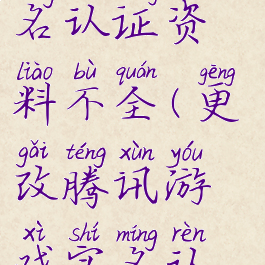 名认证资
liào bù quán gēng
料不全(更
gǎi téng xùn yóu
改腾讯游
xì shí míng rèn
戏实名认